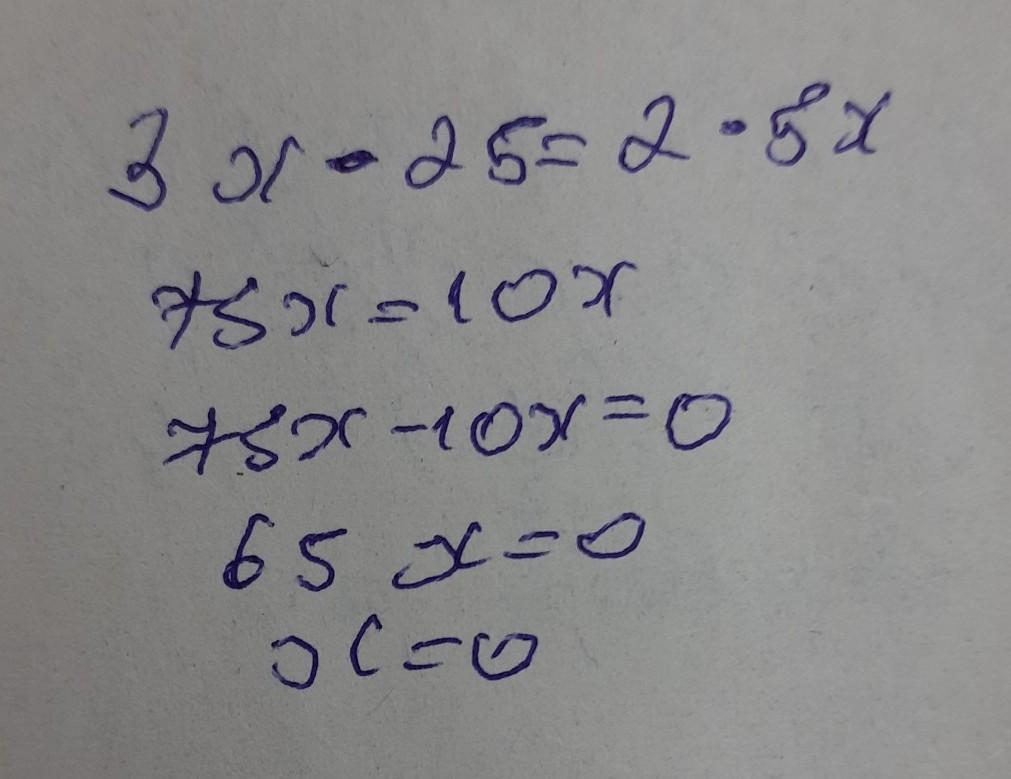 3x · 25 = 2 · 5x
75x = 10x
75x - 10x = 0
65x = 0
x = 0